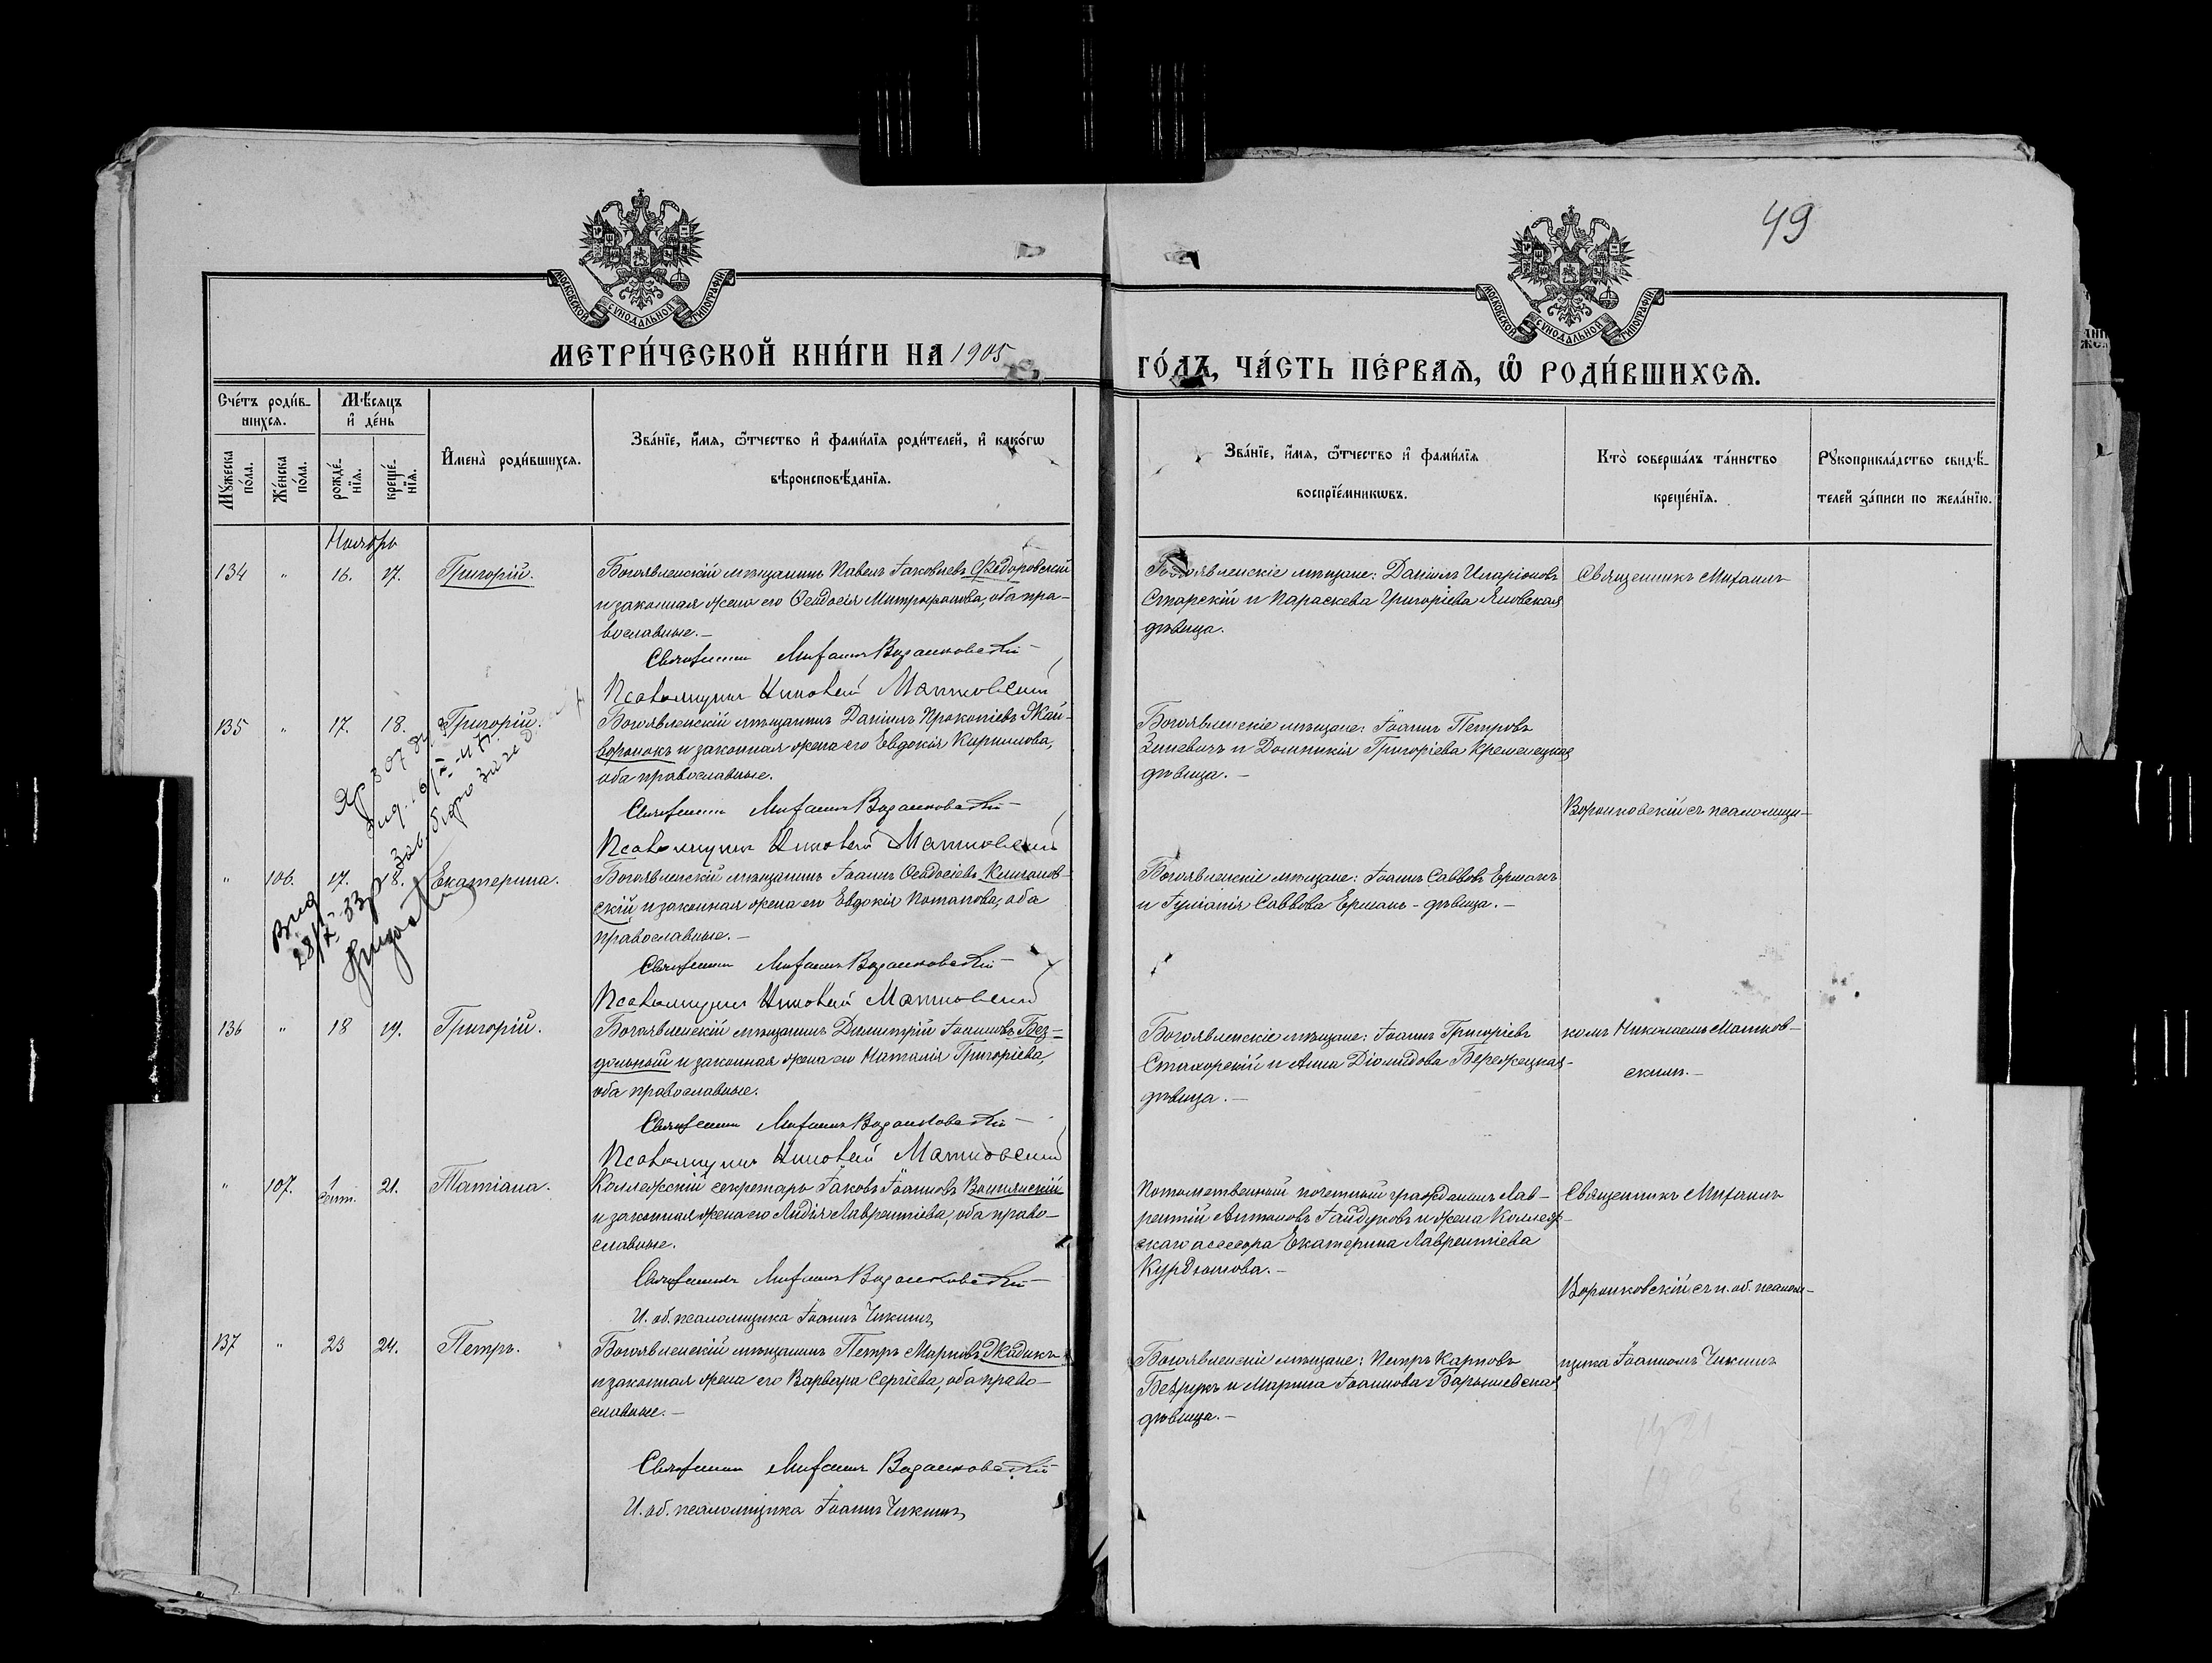 49
МОСКОВСКОЙ СѴНОДАЛЬНОЙ ТИПОГРАФІИ
МОСКОВСКОЙ СѴНОДАЛЬНОЙ ТИПОГРАФІИ
МЕТРИ́ЧЕСКОЙ КНИ́ГИ НА 1905
ГО́ДЪ, ЧА́СТЬ ПЕ́РВАѦ, Ѽ РОДИ́ВШИХСѦ.
Сче́тъ роди́в-
шихсѧ.
Мѹ́жеска по́ла.
Же́нска по́ла.
Мѣ́сѧцъ
и҆ де́нь
рожде́-
нїѧ.
креще́-
нїѧ.
И҆мена̀ роди́вшихсѧ.
Зва́нїе, и҆́мѧ, ѻ҆́тчество и҆ фами́лїѧ роди́телей, и҆ како́гѡ
вѣроисповѣ́данїѧ.
Зва́нїе, и҆́мѧ, ѻ҆́тчество и҆ фами́лїѧ
воспрїе́мникѡвъ.
Кто̀ соверша́лъ та́инство
креще́нїѧ.
Рꙋкоприкла́дство свидѣ́-
телей за́писи по жела́нїю.
Ноябрь
134 " 16. 17. Григорій.
Богоявленскій мѣщанинъ Павелъ Іаковлевъ Федоровскій
и законная жена его Ѳеодосія Митрофанова, оба пра-
вославные.—
Священникъ Михаилъ Воронковскій
Псаломщикъ Николай Матковский
Богоявленскіе мѣщане: Даніилъ Иларіоновъ
Сторскій и Параскева Григоріева Яновская
дѣвица.
Священникъ Михаилъ
135 " 17. 18. Григорій.
Богоявленскій мѣщанинъ Даніилъ Прокопіевъ Жай-
воронокъ и законная жена его Евдокія Кириллова,
оба православные.
Священникъ Михаилъ Воронковскій
Псаломщикъ Николай Матковский
Богоявленскіе мѣщане: Іоаннъ Петровъ
Зиневичъ и Домникія Григоріева Кременецкая
дѣвица.—
Воронковскій съ псаломщи-
" 106. 17. 18. Екатерина.
Богоявленскій мѣщанинъ Іоаннъ Ѳеодосіевъ
скій и законная жена его Евдокія Потапова, оба
православные.—
Священникъ Михаилъ Воронковскій
Псаломщикъ Николай Матковский
Богоявленскіе мѣщане: Іоаннъ Саввовъ Ермакъ
и Іуліанія Саввова Ермакъ - дѣвица.—
136 " 18 19. Григорій.
Богоявленскій мѣщанинъ Димитрій Іоанновъ Без-
дольный и законная жена его Наталія Григоріева,
оба православные.
Священникъ Михаилъ Воронковскій
Псаломщикъ Николай Матковский
Богоявленскіе мѣщане: Іоаннъ Григоріевъ
и Анна Діомидова Бережецкая-
дѣвица.—
комъ Николаемъ Матков-
скимъ.—
" 107. 1 Сент. 21. Татіана.
Коллежскій секретарь Іаковъ Іоанновъ
и законная жена его Лидія Лаврентіева, оба право-
славные.
Священникъ Михаилъ Воронковскій
И. об. псаломщика Іоаннъ Чикинъ
Потомственный почетный гражданинъ Лав-
рентій Антоновъ Гайдуковъ и жена Коллеж-
скаго ассесора Екатерина Лаврентіева
Курдюмова.—
Священникъ Михаилъ
Воронковскій съ и. об. псалом-
137 " 23 24. Петръ.
Богоявленскій мѣщанинъ Петръ Марковъ Жадикъ
и законная жена его Варвара Сергіева, оба право-
славные.—
Священникъ Михаилъ Воронковскій
И. об. псаломщика Іоаннъ Чикинъ
Богоявленскіе мѣщане: Петръ Карповъ
и Марина Іоаннова Барышевская
дѣвица.—
щика Іоанномъ Чикинъ